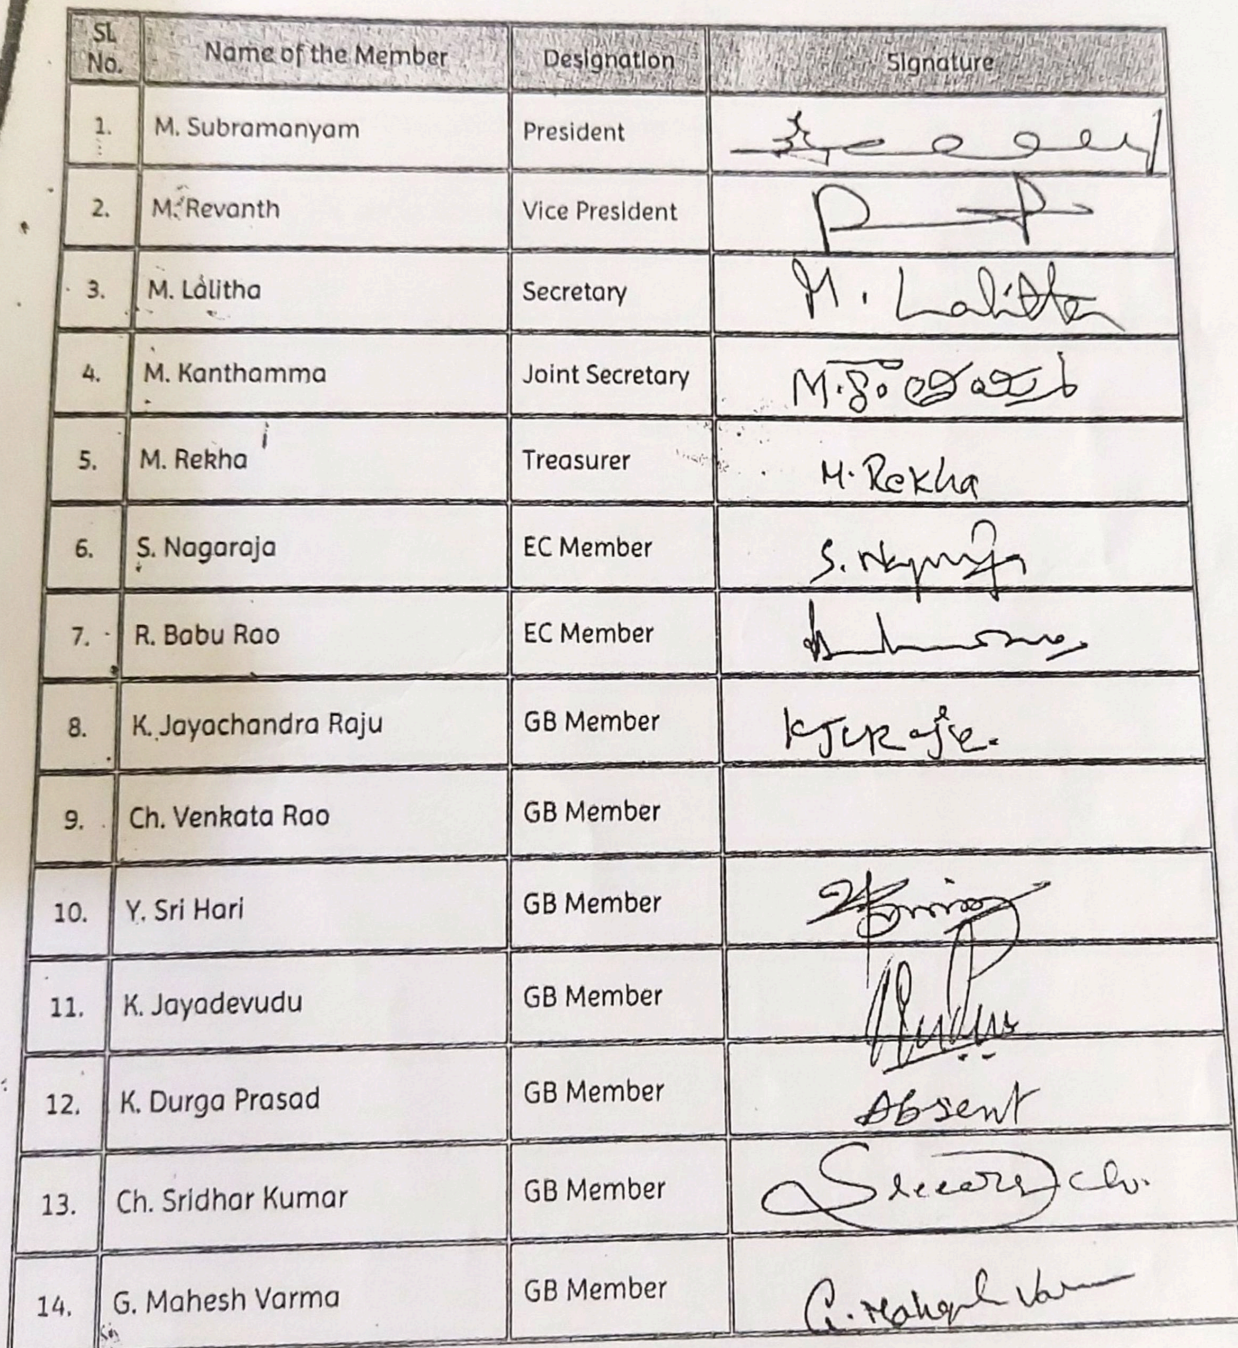 SL No. Name of the Member Designation Signature
1. M. Subramanyam President
2. M. Revanth Vice President
3. M. Lalitha Secretary M. Lalitha
4. M. Kanthamma Joint Secretary
5. M. Rekha Treasurer M. Rekha
6. S. Nagaraja EC Member
7. R. Babu Rao EC Member
8. K. Jayachandra Raju GB Member
9. Ch. Venkata Rao GB Member
10. Y. Sri Hari GB Member
11. K. Jayadevudu GB Member
12. K. Durga Prasad GB Member Absent
13. Ch. Sridhar Kumar GB Member
14. G. Mahesh Varma GB Member